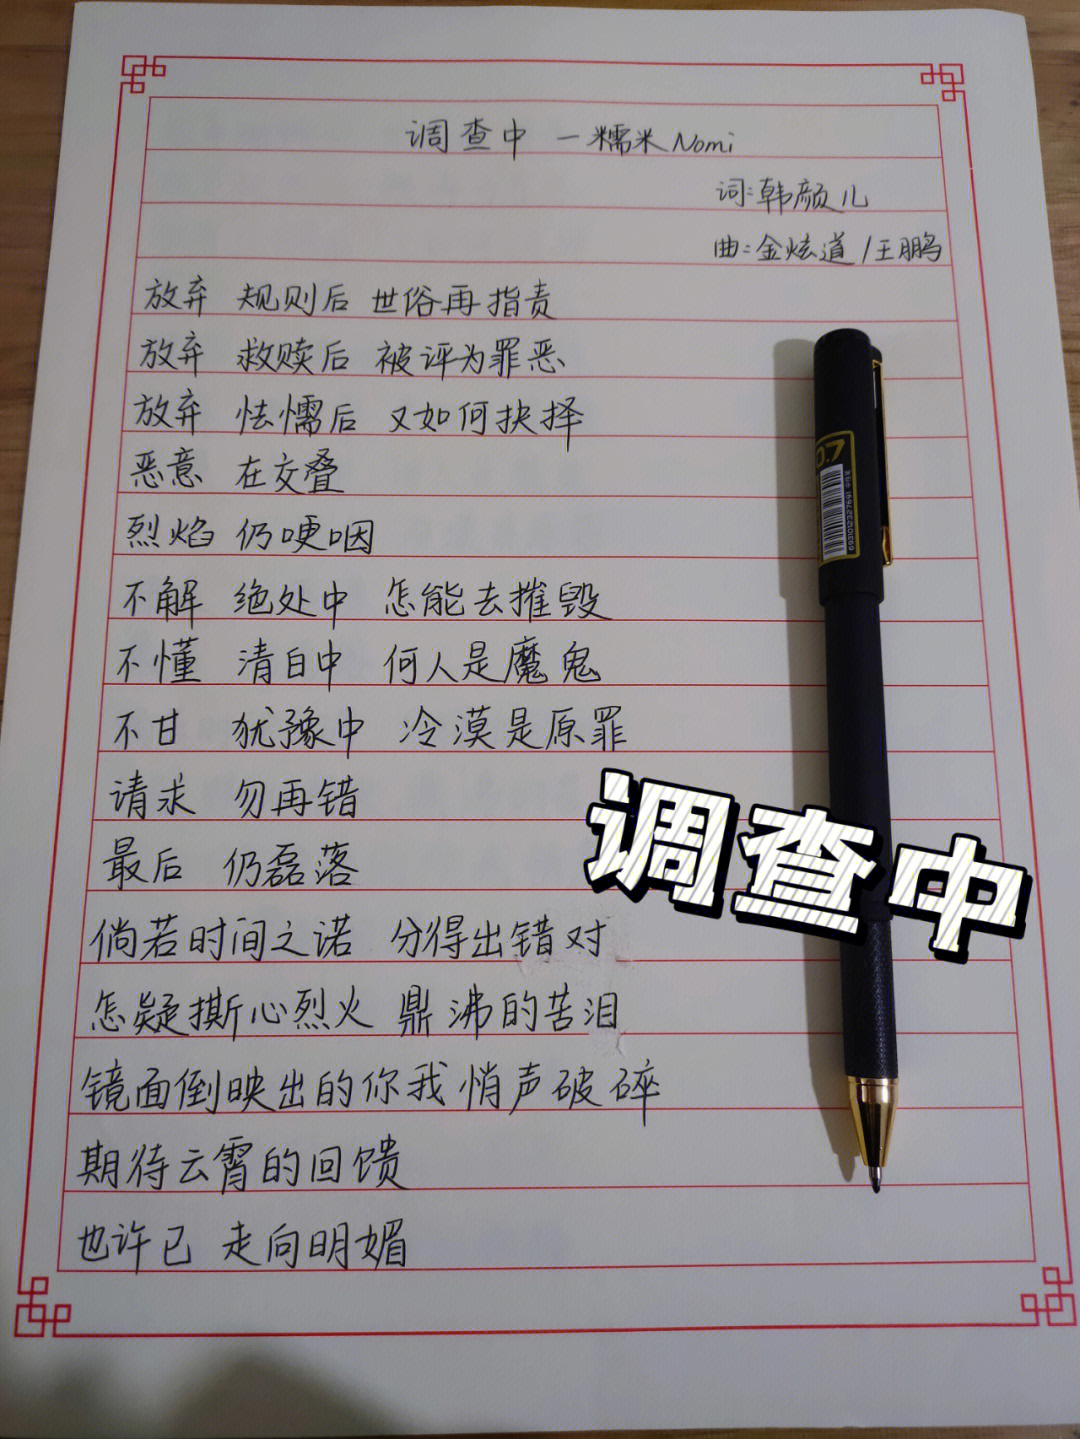 调查中 一糯米Nomi
词:韩颜儿
曲:金炫道/王鹏
放弃 规则后 世俗再指责
放弃 救赎后 被评为罪恶
放弃 怯懦后 又如何抉择
恶意 在交叠
烈焰 仍哽咽
不解 绝处中 怎能去摧毁
不懂 清白中 何人是魔鬼
不甘 犹豫中 冷漠是原罪
请求 勿再错
最后 仍磊落
倘若时间之诺 分得出错对
怎疑撕心烈火 鼎沸的苦泪
镜面倒映出的你我 悄声破碎
期待云霄的回馈
也许已 走向明媚
0.7
调查中